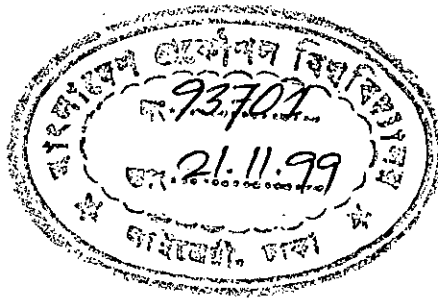 বাংলাদেশ প্রকৌশল বিশ্ববিদ্যালয়
নং. 93701
তাং. 21.11.99
লাইব্রেরী, ঢাকা